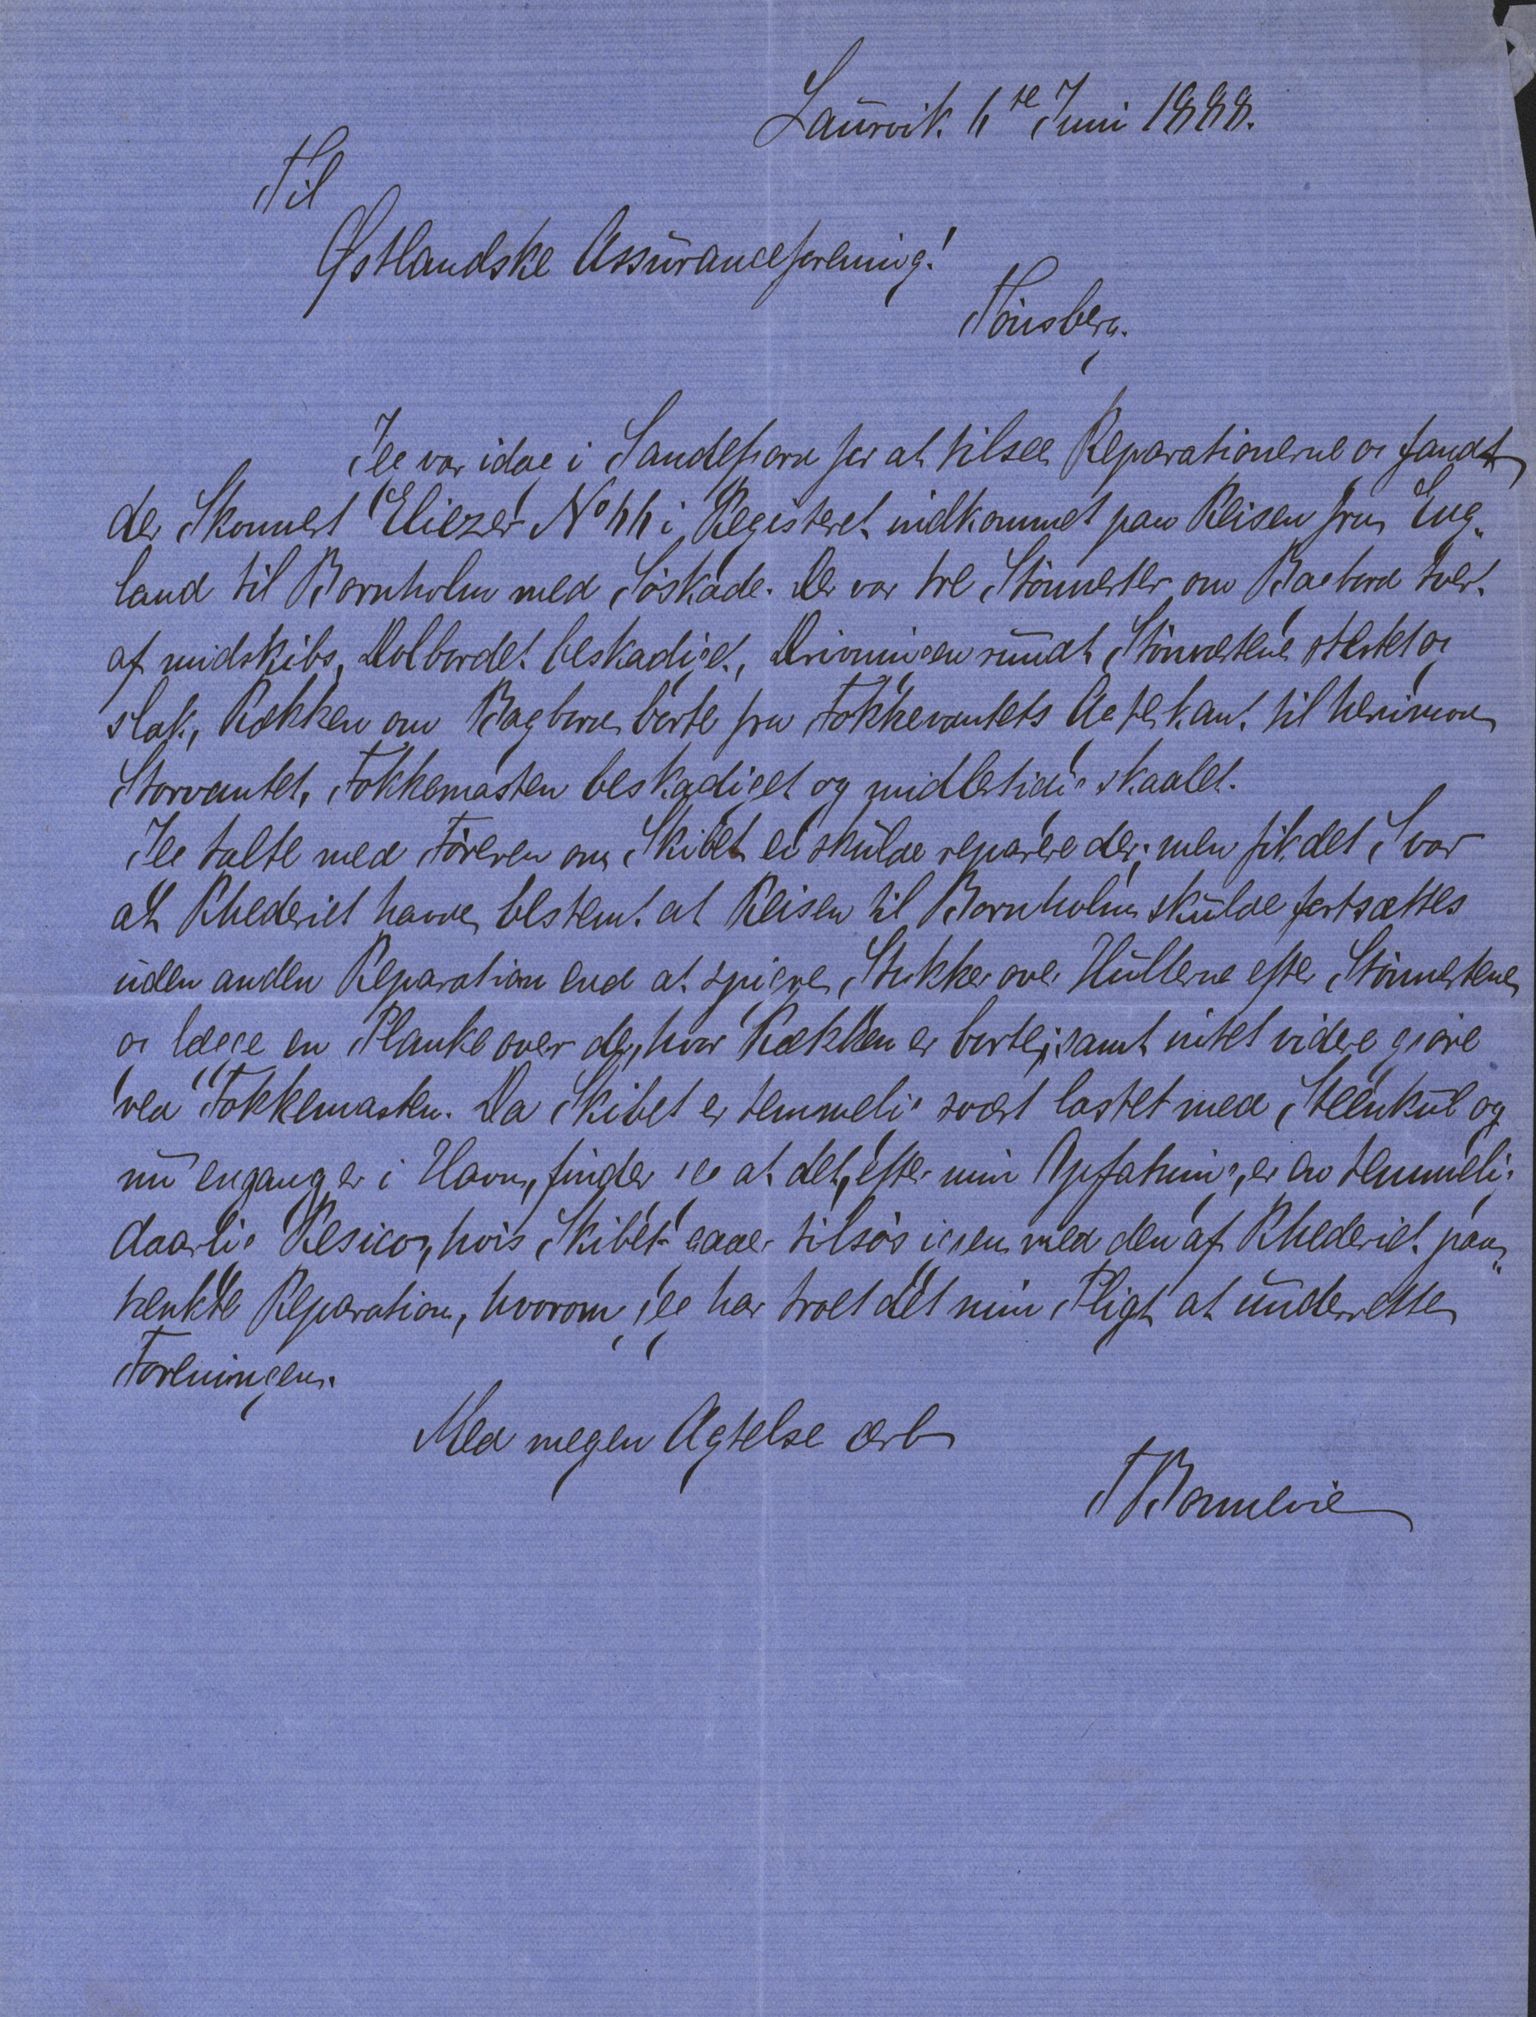 Laurvik 6te Juni 1888.
Til
Østlandske Assuranceforening!
Tönsberg.
Jeg var idag i Sandefjord for at tilsee Reparationerne og fandt
der Skonnert Eliezer No 66 i Registeret indkommet paa Reisen fra Eng-
land til Bornholm med Söskade. Der var tre Stönnester om Bagbord tver.
af midskibs, Dolbordet beskadiget, Drivningen rundt Stönnestene og
slak, Rækken om Bagbord borte fra Fokkevantets Agterkant til henimod
Storvantet, Fokkemasten beskadiget og midlertidig skaalet.
Jeg talte med Föreren om Skibet ei skulde reparere der; men fik det Svar
at Rhederiet havde bestemt at Reisen til Bornholm skulde fortsættes
uden anden Reparation end at spigre Stykker over Hullerne efter Stönnestene
og lægge en Planke over der, hvor Rækken er borte; samt intet videre gjöre
ved Fokkemasten. Da Skibet er temmelig svært lastet med Steenkul og
nu engang er i Havn, finder jeg at det, efter min Opfatning, er en temmelig
daarlig Resico, hvis Skibet gaaer tilsös igjen med den af Rhederiet paa-
tænkte Reparation, hvorom jeg har troet det min Pligt at underrette
Foreningen.
Med megen Agtelse ærb
T Bonnevie